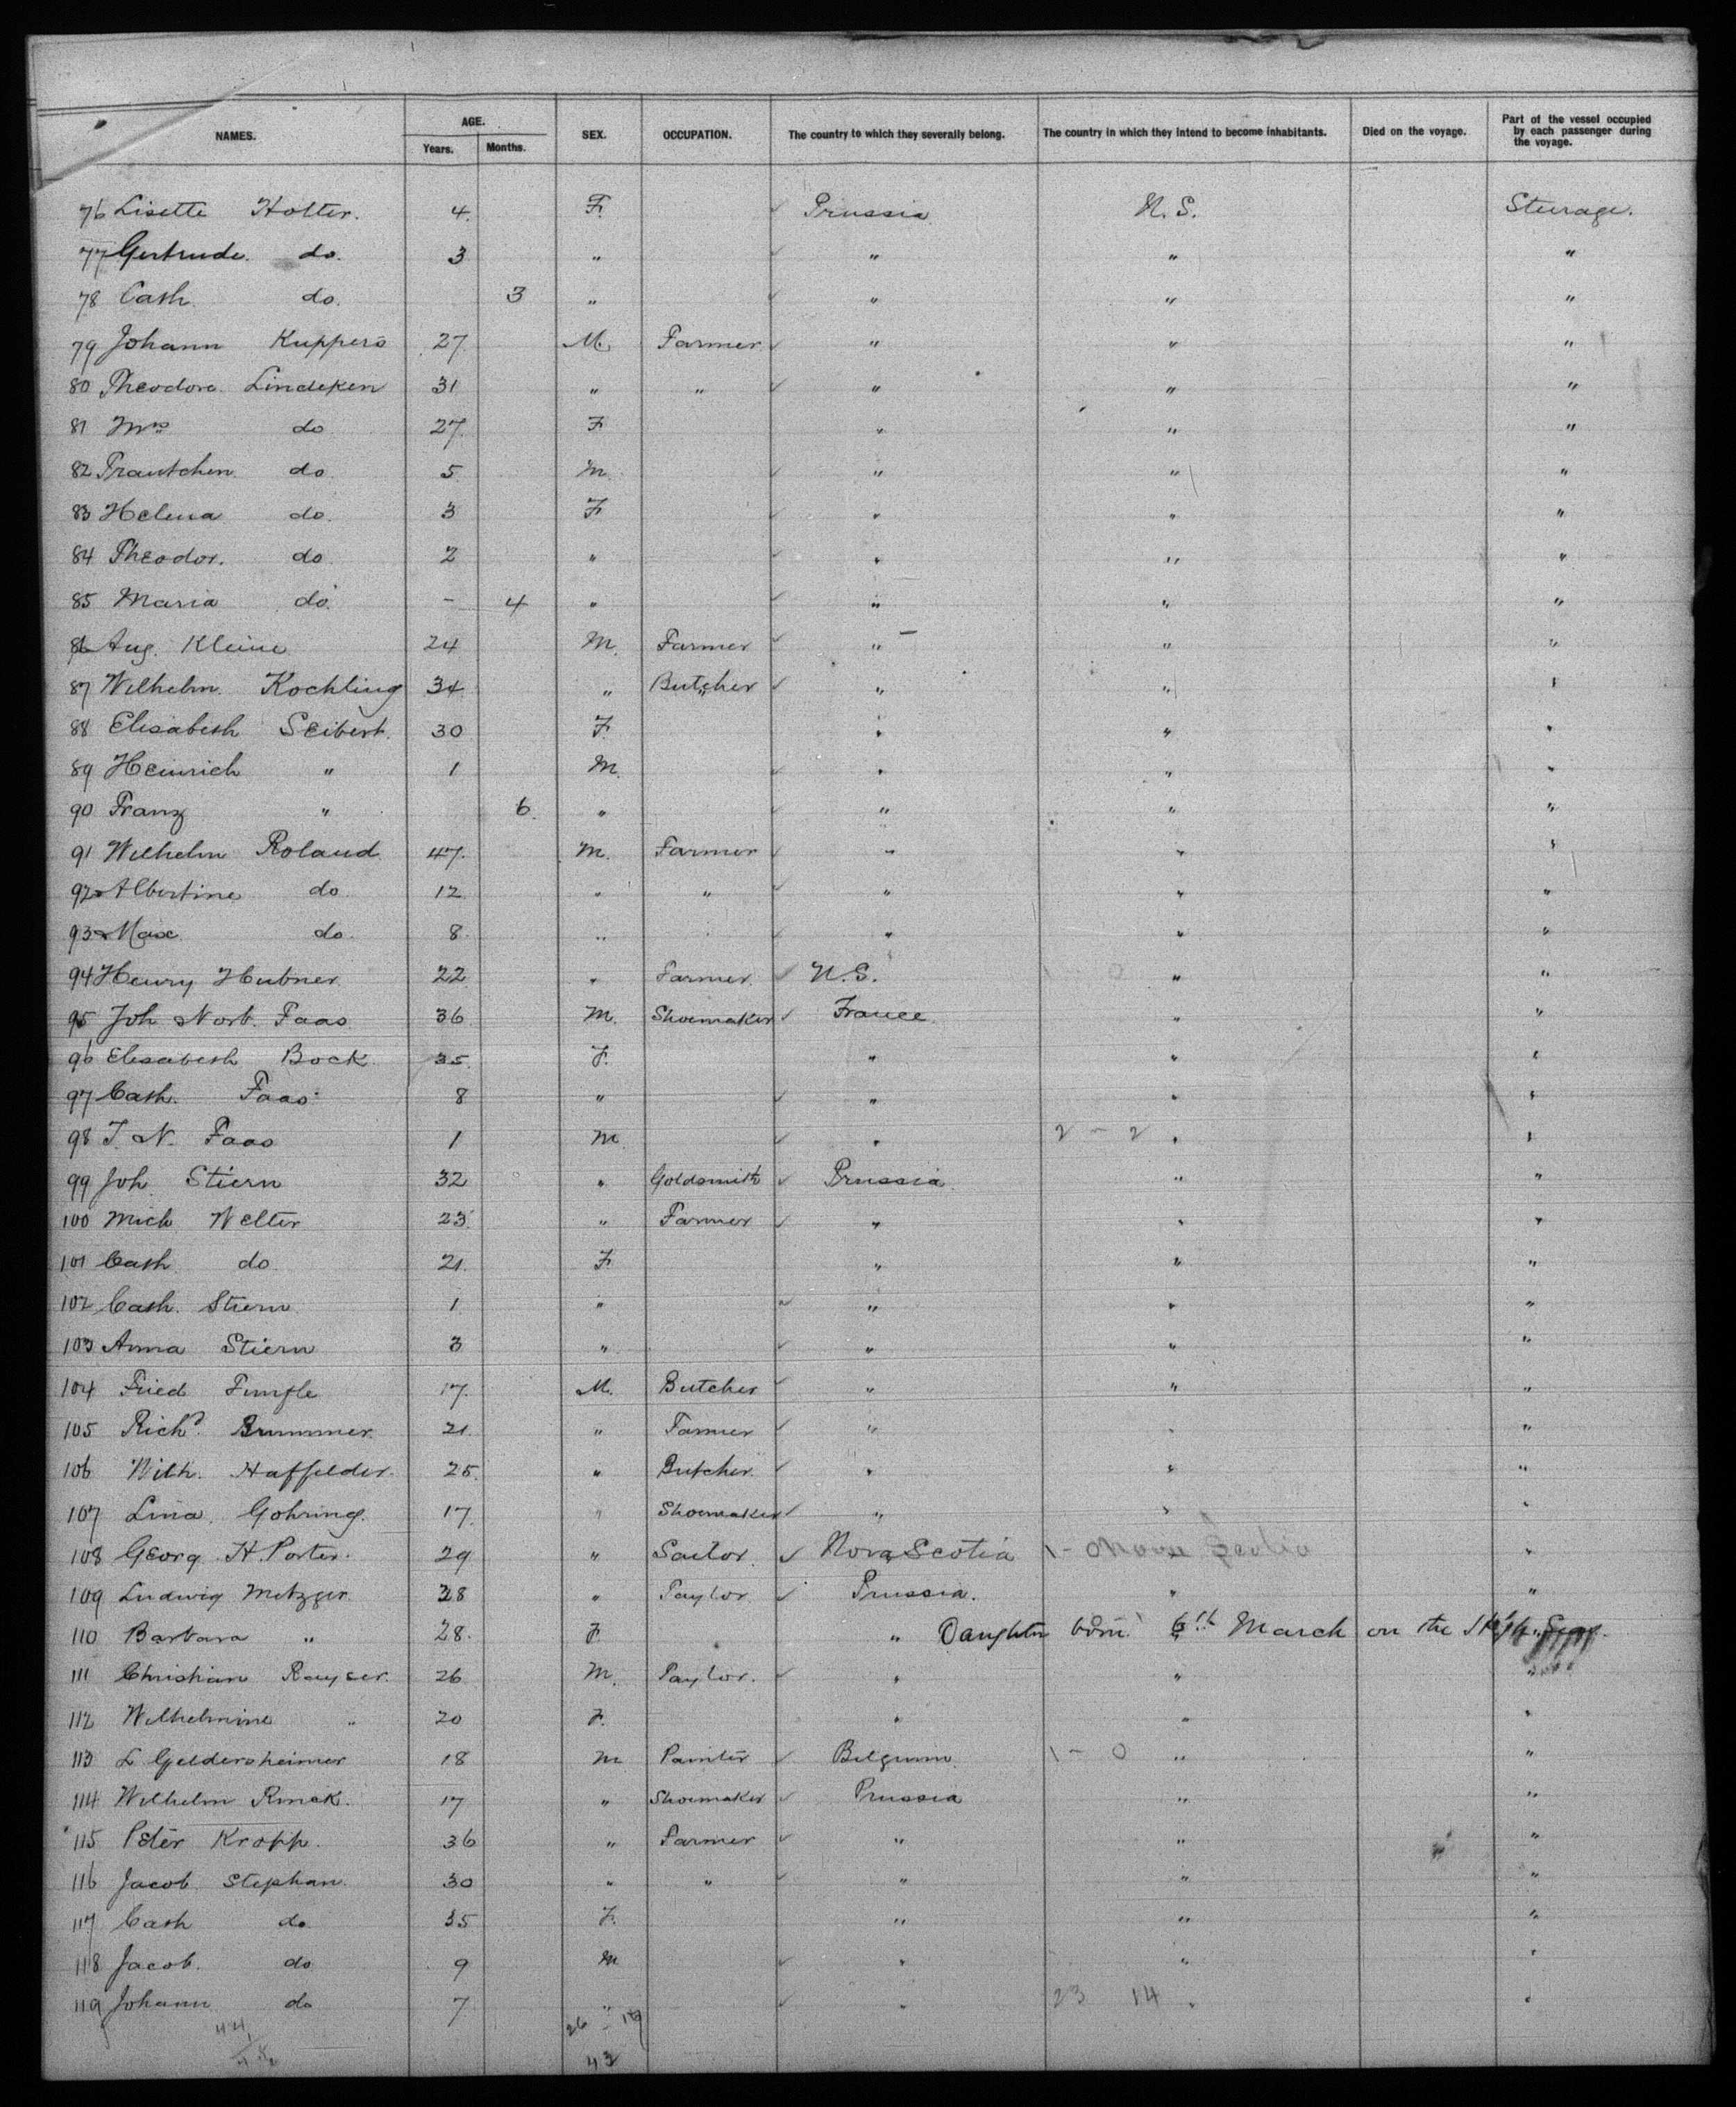 NAMES. AGE. Years. Months. SEX. OCCUPATION. The country to which they severally belong. The country in which they intend to become inhabitants. Died on the voyage. Part of the vessel occupied by each passenger during the voyage.
76 Lisette Holter. 4. F. Prussia U.S. Steerage.
77 Gertrude. do. 3 " " " "
78 Cath. do. 3 " " " "
79 Johann Kuppers 27 M. Farmer " " "
80 Theodore Lindeken 31 " " " " "
81 Mrs do 27. F " " "
82 Trautchen do 5 M. " " "
83 Helena do. 3 F " " "
84 Theodor. do 2 " " " "
85 Maria do. - 4 " " " "
86 Aug. Kleine 24 M. Farmer " " "
87 Wilhelm. Kochling 34 " Butcher " " "
88 Elisabeth Seibert. 30 F. " " "
89 Heinrich " 1 M. " " "
90 Franz " 6. " " " "
91 Wilhelm Roland 47. M. Farmer " " "
92 Albertine do 12 " " " " "
93 Max do. 8. " " " "
94 Henry Hubner 22 " Farmer U.S. " "
95 Joh Norb. Faas 36 M. Shoemaker France " "
96 Elisabeth Bock 35. F. " " "
97 Cath. Faas 8 " " " "
98 J. N. Faas 1 M " 2 - 2 " "
99 Joh. Stiern 32 " Goldsmith Prussia " "
100 Mich Welter 23. " Farmer " " "
101 Cath do 21. F " " "
102 Cath. Stiern 1 " " " "
103 Anna Stiern 3 " " " "
104 Fried 17. M. Butcher " " "
105 Richd. Brummer. 21. " Farmer " " "
106 Wilh. Haffelder. 25. " Butcher " " "
107 Lina. Gohring. 17. " Shoemaker " " "
108 Georg H. Porter. 29 " Sailor. Nova Scotia 1 - Nova Scotia "
109 Ludwig Metzger 28 " Taylor Prussia. " "
110 Barbara " 28. F " Daughter born 6th March on the High Seas.
111 Christian Rayser. 26 M. Taylor. " " "
112 Wilhelmine " 20 F. " " "
113 L Geldersheimer 18 M Painter Belgium 1 - 0 " "
114 Wilhelm Rinck. 17 " Shoemaker Prussia " "
115 Peter Kropp. 36 " Farmer " " "
116 Jacob Stephan. 30 " " " " "
117 Cath do 35 F. " " "
118 Jacob. do 9 M " " "
119 Johann do 7 " " 23 14 " "
44
26 - 19
43